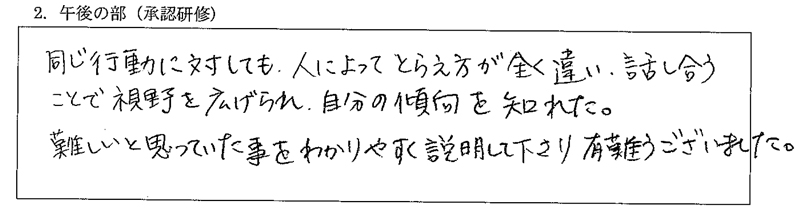 2. 午後の部（承認研修）
同じ行動に対しても、人によってとらえ方が全く違い、話し合う
ことで視野を広げられ、自分の傾向を知れた。
難しいと思っていた事をわかりやすく説明して下さり有難うございました。